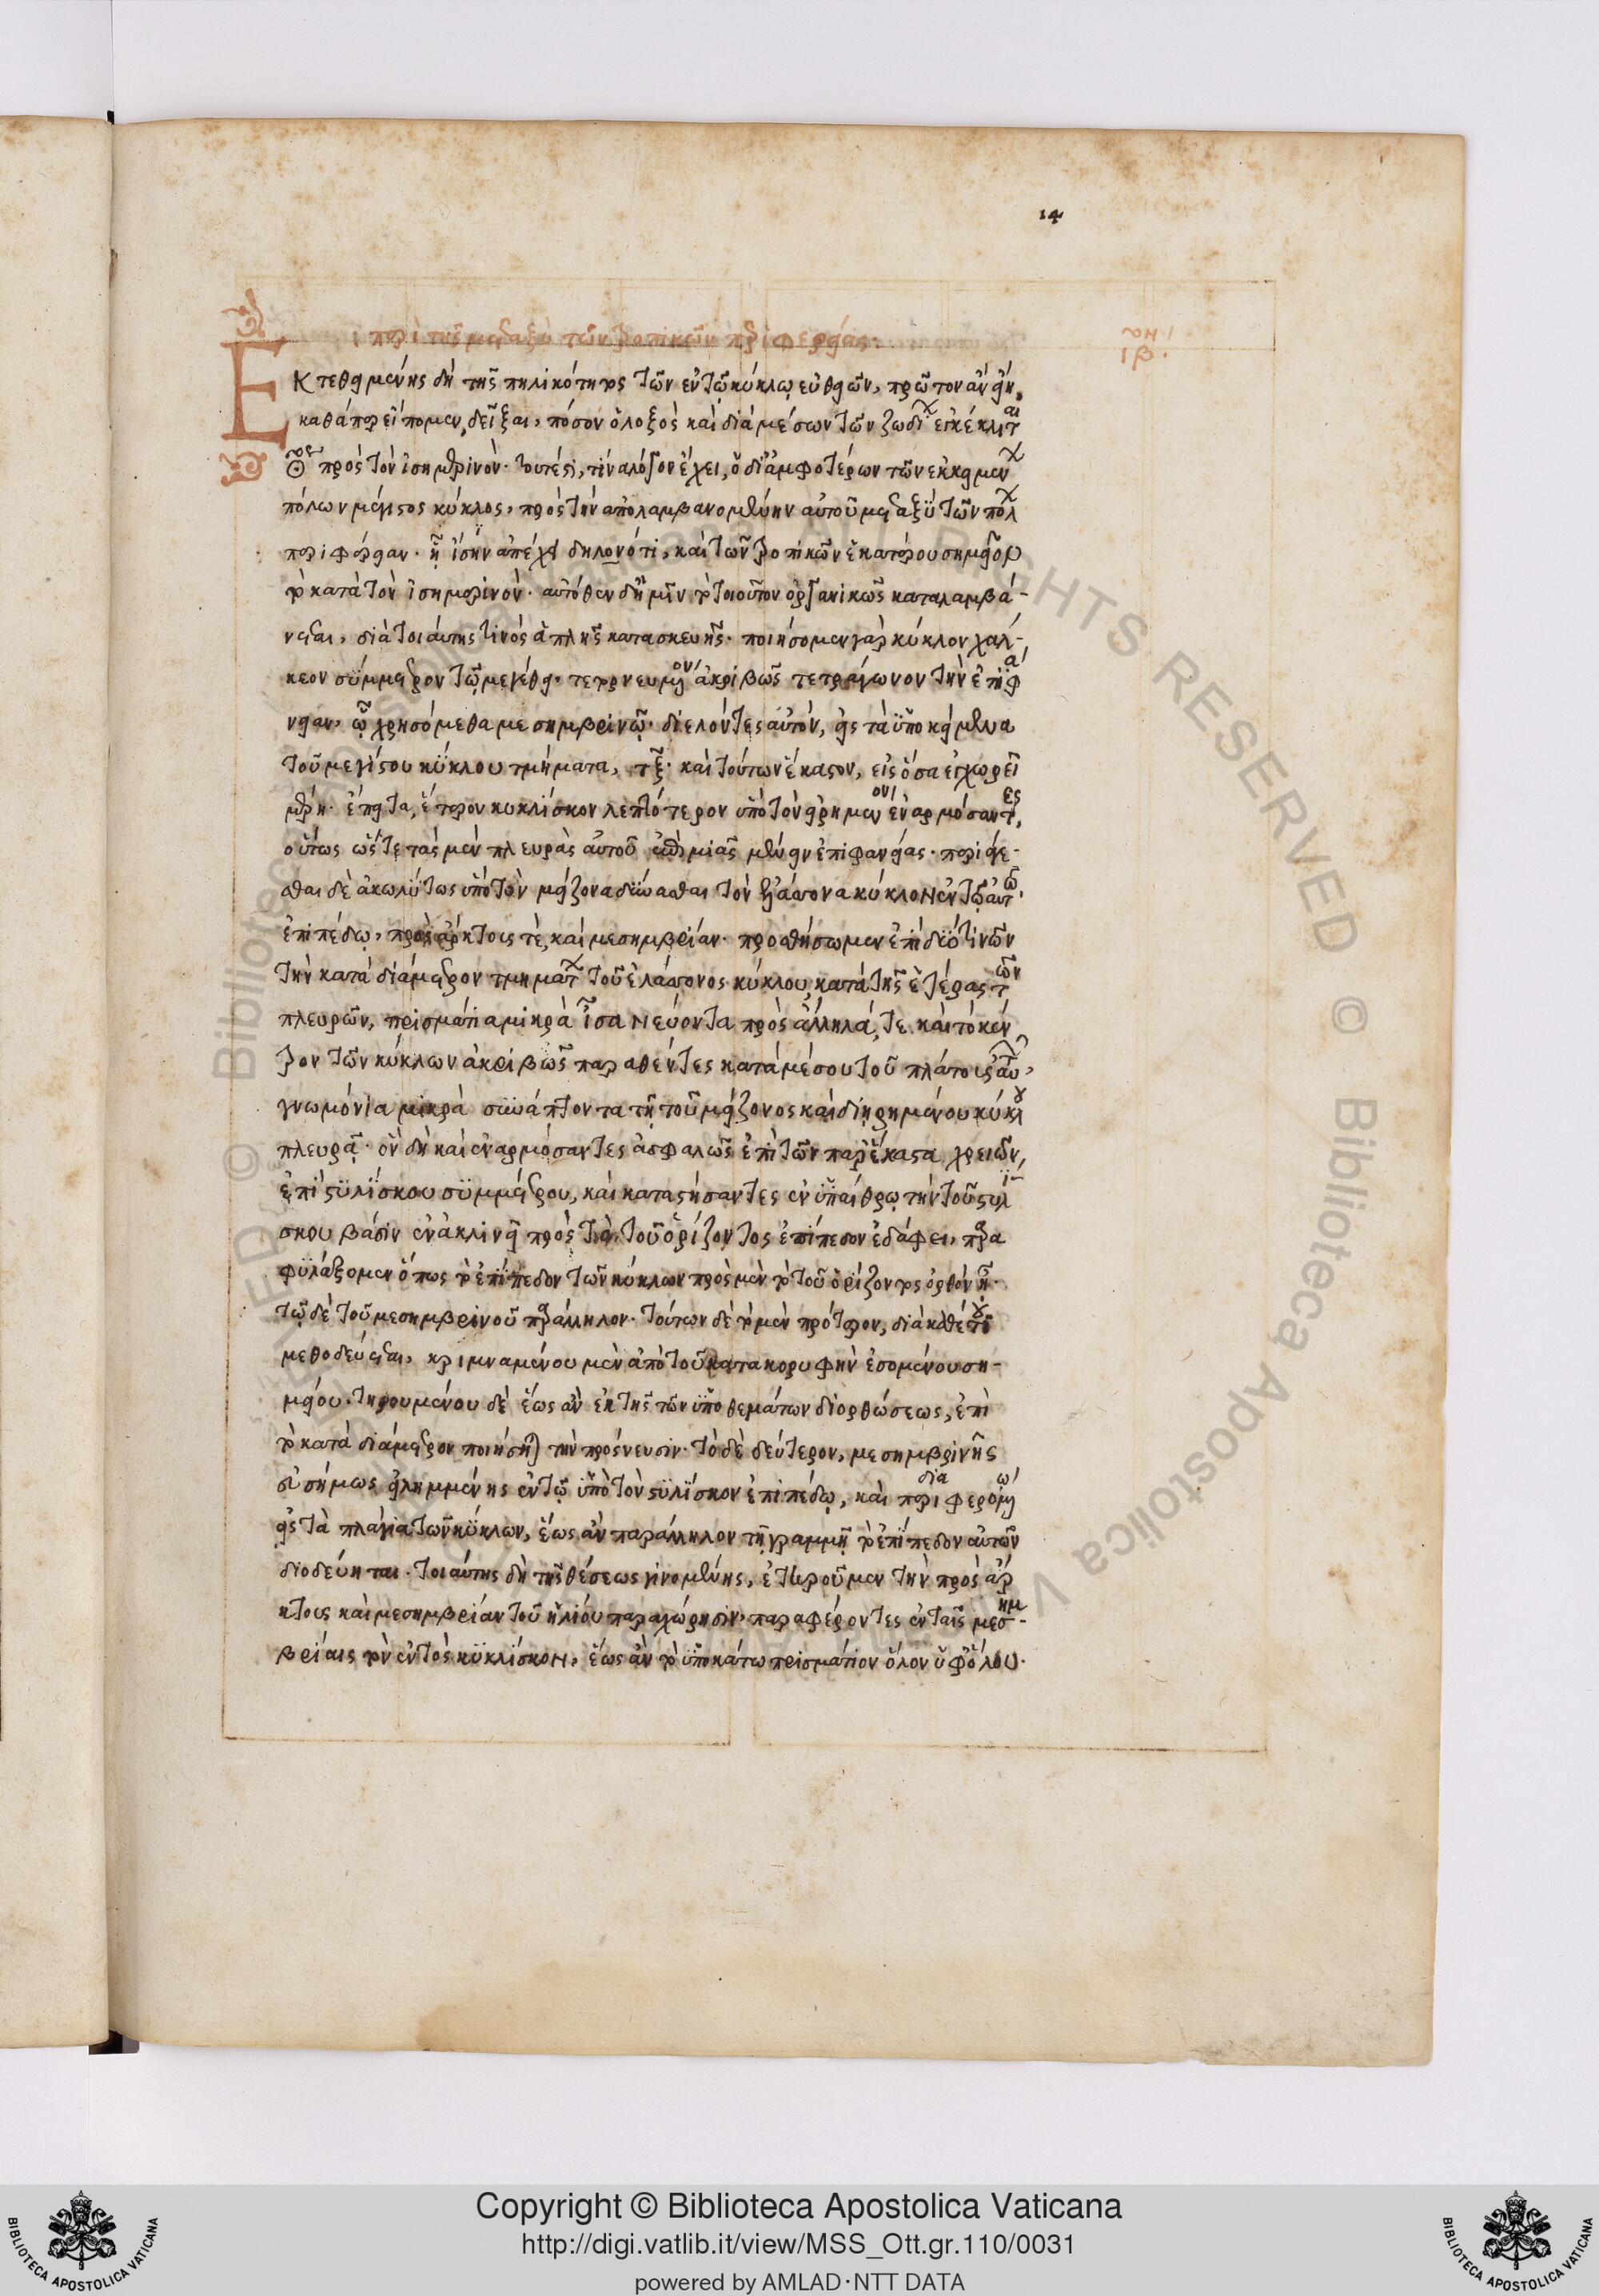 14
περὶ τῆς μεταξὺ τῶν τροπικῶν περιφερείας.
ιβ.
Εκτεθειμένης δὴ τῆς πηλικότητος τῶν ἐν τῷ κύκλῳ εὐθειῶν, πρῶτον ἂν εἴη,
καθάπερ εἴπομεν, δεῖξαι, πόσον ὁ λοξὸς καὶ διὰ μέσων τῶν ζωδι ἐγκέκλιται
πρὸς τὸν ἰσημερινόν. τουτέστι, τίνα λόγον ἔχει, ὁ δι' ἀμφοτέρων τῶν ἐκκειμεν
πόλων μέγιστος κύκλος, πρὸς τὴν ἀπολαμβανομένην αὐτοῦ μεταξὺ τῶν πολ
περιφέρειαν. ᾗ ἴσην ἀπέχει δηλονότι, καὶ τῶν τροπικῶν ἑκατέρου σημεῖον
τὸ κατὰ τὸν ἰσημερινόν. αὐτόθεν δ' ἡμῖν τὸ τοιοῦτον ὀργανικῶς καταλαμβά-
νεται, διὰ τοιαύτης τινὸς ἁπλῆς κατασκευῆς. ποιήσομεν γὰρ κύκλον χάλ-
κεον σύμμετρον τῷ μεγέθει. τετορνευμένον ἀκριβῶς τετράγωνον τὴν ἐπιφά
νειαν, ᾧ χρησόμεθα μεσημβρινῷ. διελόντες αὐτόν, εἰς τὰ ὑποκείμενα
τοῦ μεγίστου κύκλου τμήματα, τξ. καὶ τούτων ἕκαστον, εἰς ὅσα ἐγχωρεῖ
μέρη. ἔπειτα, ἕτερον κυκλίσκον λεπτότερον ὑπὸ τὸν εἰρημένον ἐναρμόσαντες,
οὕτως ὥστε τὰς μὲν πλευρὰς αὐτοῦ ἐπὶ μιᾶς μένειν ἐπιφανείας. περιάγε-
σθαι δὲ ἀκωλύτως ὑπὸ τὸν μείζονα δύνασθαι τὸν ἐλάσσονα κύκλον ἐν τῷ αὐτῷ
ἐπιπέδῳ, πρὸς ἄρκτους τὲ καὶ μεσημβρίαν. προσθήσωμεν ἐπὶ δύο τινῶν
τὴν κατὰ διάμετρον τμηματ τοῦ ἐλάσσονος κύκλου, κατὰ τῆς ἑτέρας τῶν
πλευρῶν, πρισμάτια μικρὰ ἴσα νεύοντα πρὸς ἄλληλά, τε καὶ τὸ κέν
τρον τῶν κύκλων ἀκριβῶς παραθέντες κατὰ μέσου τοῦ πλάτους αὐτῶν,
γνωμόνια μικρὰ συνάπτοντα τῇ τοῦ μείζονος καὶ διῃρημένου κύκλου
πλευρᾷ. ὃν δὴ καὶ ἐναρμόσαντες ἀσφαλῶς ἐπὶ τῶν παρ' ἕκαστα χρειῶν,
ἐπὶ στυλίσκου συμμέτρου, καὶ καταστήσαντες ἐν ὑπαίθρῳ τὴν τοῦ στυλί
σκου βάσιν ἐν ἀκλινεῖ πρὸς τὸ τοῦ ὁρίζοντος ἐπίπεδον ἐδάφει, παρα
φυλάξομεν ὅπως τὸ ἐπίπεδον τῶν κύκλων πρὸς μὲν τὸ τοῦ ὁρίζοντος ὀρθὸν ᾖ.
τῷ δὲ τοῦ μεσημβρινοῦ παράλληλον. τούτων δὲ τὸ μὲν πρότερον, διὰ καθέτου
μεθοδεύεται, κριμναμένου μὲν ἀπὸ τοῦ κατὰ κορυφὴν ἐσομένου ση-
μείου. τηρουμένου δὲ ἕως ἂν ἐκ τῆς τῶν ὑποθεμάτων διορθώσεως, ἐπὶ
τὸ κατὰ διάμετρον ποιήσηται τὴν πρόσνευσιν. τὸ δὲ δεύτερον, μεσημβρινῆς
εὐσήμως εἰλημμένης ἐν τῷ ὑπὸ τὸν στυλίσκον ἐπιπέδῳ, καὶ περιφερομένων
εἰς τὰ πλάγια τῶν κύκλων, ἕως ἂν παράλληλον τῇ γραμμῇ τὸ ἐπίπεδον αὐτῶν
διοδεύηται. τοιαύτης δὴ τῆς θέσεως γινομένης, ἐτηροῦμεν τὴν πρὸς ἄρ
κτους καὶ μεσημβρίαν τοῦ ἡλίου παραχώρησιν, παραφέροντες ἐν ταῖς μεσημ-
βρίαις τὸν ἐντὸς κυκλίσκον, ἕως ἂν τὸ ὑποκάτω πρισμάτιον ὅλον ὑφ' ὅλου.
Copyright © Biblioteca Apostolica Vaticana
http://digi.vatlib.it/view/MSS_Ott.gr.110/0031
powered by AMLAD·NTT DATA